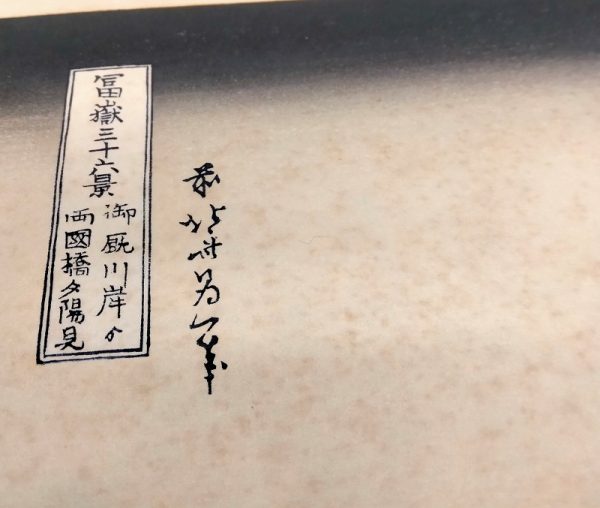 冨嶽三十六景
御厩川岸ゟ
両國橋夕陽見
前北斎為一筆